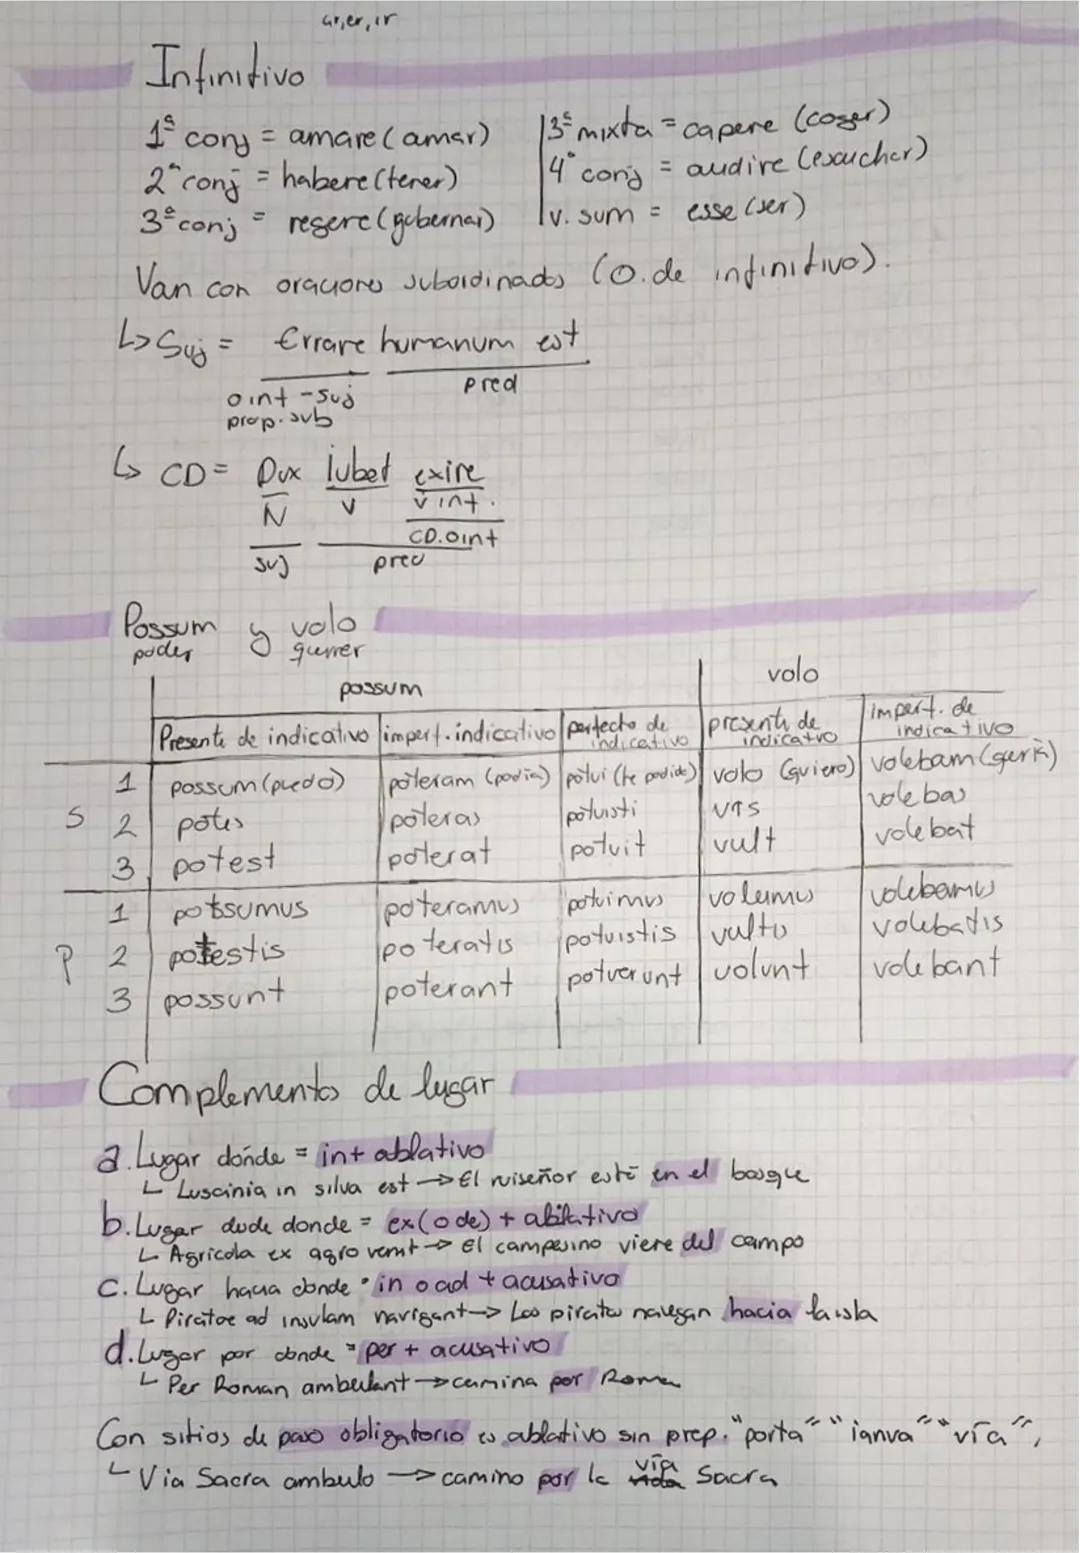 ar, er, ir
Infinitivo
1ª conj = amare (amar)
2ª conj = habere (tener)
3ª conj = regere (gobernar)
3ª mixta = capere (coger)
4ª conj = audire (escuchar)
v. sum = esse (ser)
Van con oraciones subordinadas (O. de infinitivo).
↳ Suj = Errare humanum est
o inf - suj pred
prop. sub
↳ CD = Dux iubet exire
N v v inf.
CD. o inf
suj pred
Possum y volo
poder querer
possum volo
Presente de indicativo imperf. indicativo perfecto de indicativo presente de indicativo imperf. de indicativo
S 1 possum (puedo) poteram (podia) potui (he podido) volo (quiero) volebam (quería)
2 potes poteras potuisti vis volebas
3 potest poterat potuit vult volebat
P 1 potssumus poteramus potuimus volumus volebamus
2 potestis poteratis potuistis vultis volebatis
3 possunt poterant potuerunt volunt volebant
Complementos de lugar
a. Lugar dónde = in + ablativo
↳ Luscinia in silva est → El ruiseñor esté en el bosque
b. Lugar desde donde = ex (o de) + ablativo
↳ Agricola ex agro venit → El campesino viene del campo
c. Lugar hacia donde = in o ad + acusativo
↳ Piratae ad insulam navigant → Los piratas navegan hacia la isla
d. Lugar por donde = per + acusativo
↳ Per Roman ambulant → camina por Roma
Con sitios de paso obligatorio es ablativo sin prep. "porta" "ianva" "vía",
↳ Via Sacra ambulo → camino por la vía Sacra